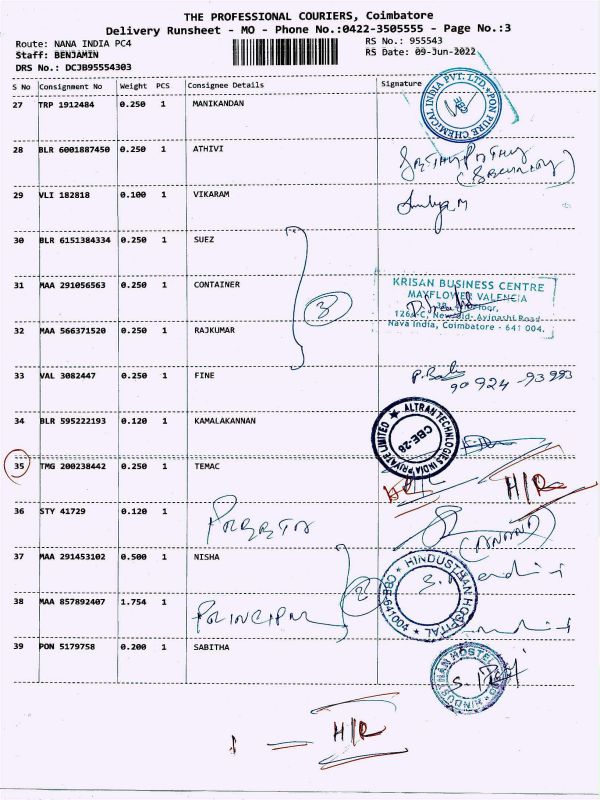 THE PROFESSIONAL COURIERS, Coimbatore
Delivery Runsheet - MO - Phone No.:0422-3505555 - Page No.:3
Route: NANA INDIA PC4
RS No.: 955543
Staff: BENJAMIN
RS Date: 09-Jun-2022
DRS No.: DCJB95554303
S No Consignment No Weight PCS Consignee Details Signature
27 TRP 1912484 0.250 1 MANIKANDAN
INDIA PVT. LTD. ★ PON PURE CHEMICAL
28 BLR 6001887450 0.250 1 ATHIVI
(Security)
29 VLI 182818 0.100 1 VIKARAM
30 BLR 6151384334 0.250 1 SUEZ
31 MAA 291056563 0.250 1 CONTAINER
3
KRISAN BUSINESS CENTRE
MAYFLOWER VALENCIA
Floor,
1264-C, Avinashi Road
Nava India, Coimbatore - 641 004.
32 MAA 566371520 0.250 1 RAJKUMAR
33 VAL 3082447 0.250 1 FINE
34 BLR 595222193 0.120 1 KAMALAKANNAN
ALTRAN TECHNLOGIES INDIA PRIVATE LIMITED ★
CBE-28
35 TMG 200238442 0.250 1 TEMAC
H/R
36 STY 41729 0.120 1
(ANAND)
37 MAA 291453102 0.500 1 NISHA
2
HINDUSTHAN HOSPITAL ★ CBE-641004 ★
38 MAA 857892407 1.754 1 PRINCIPAL
39 PON 5179758 0.200 1 SABITHA
HINDUSTHAN HOSTEL
1 — H/R